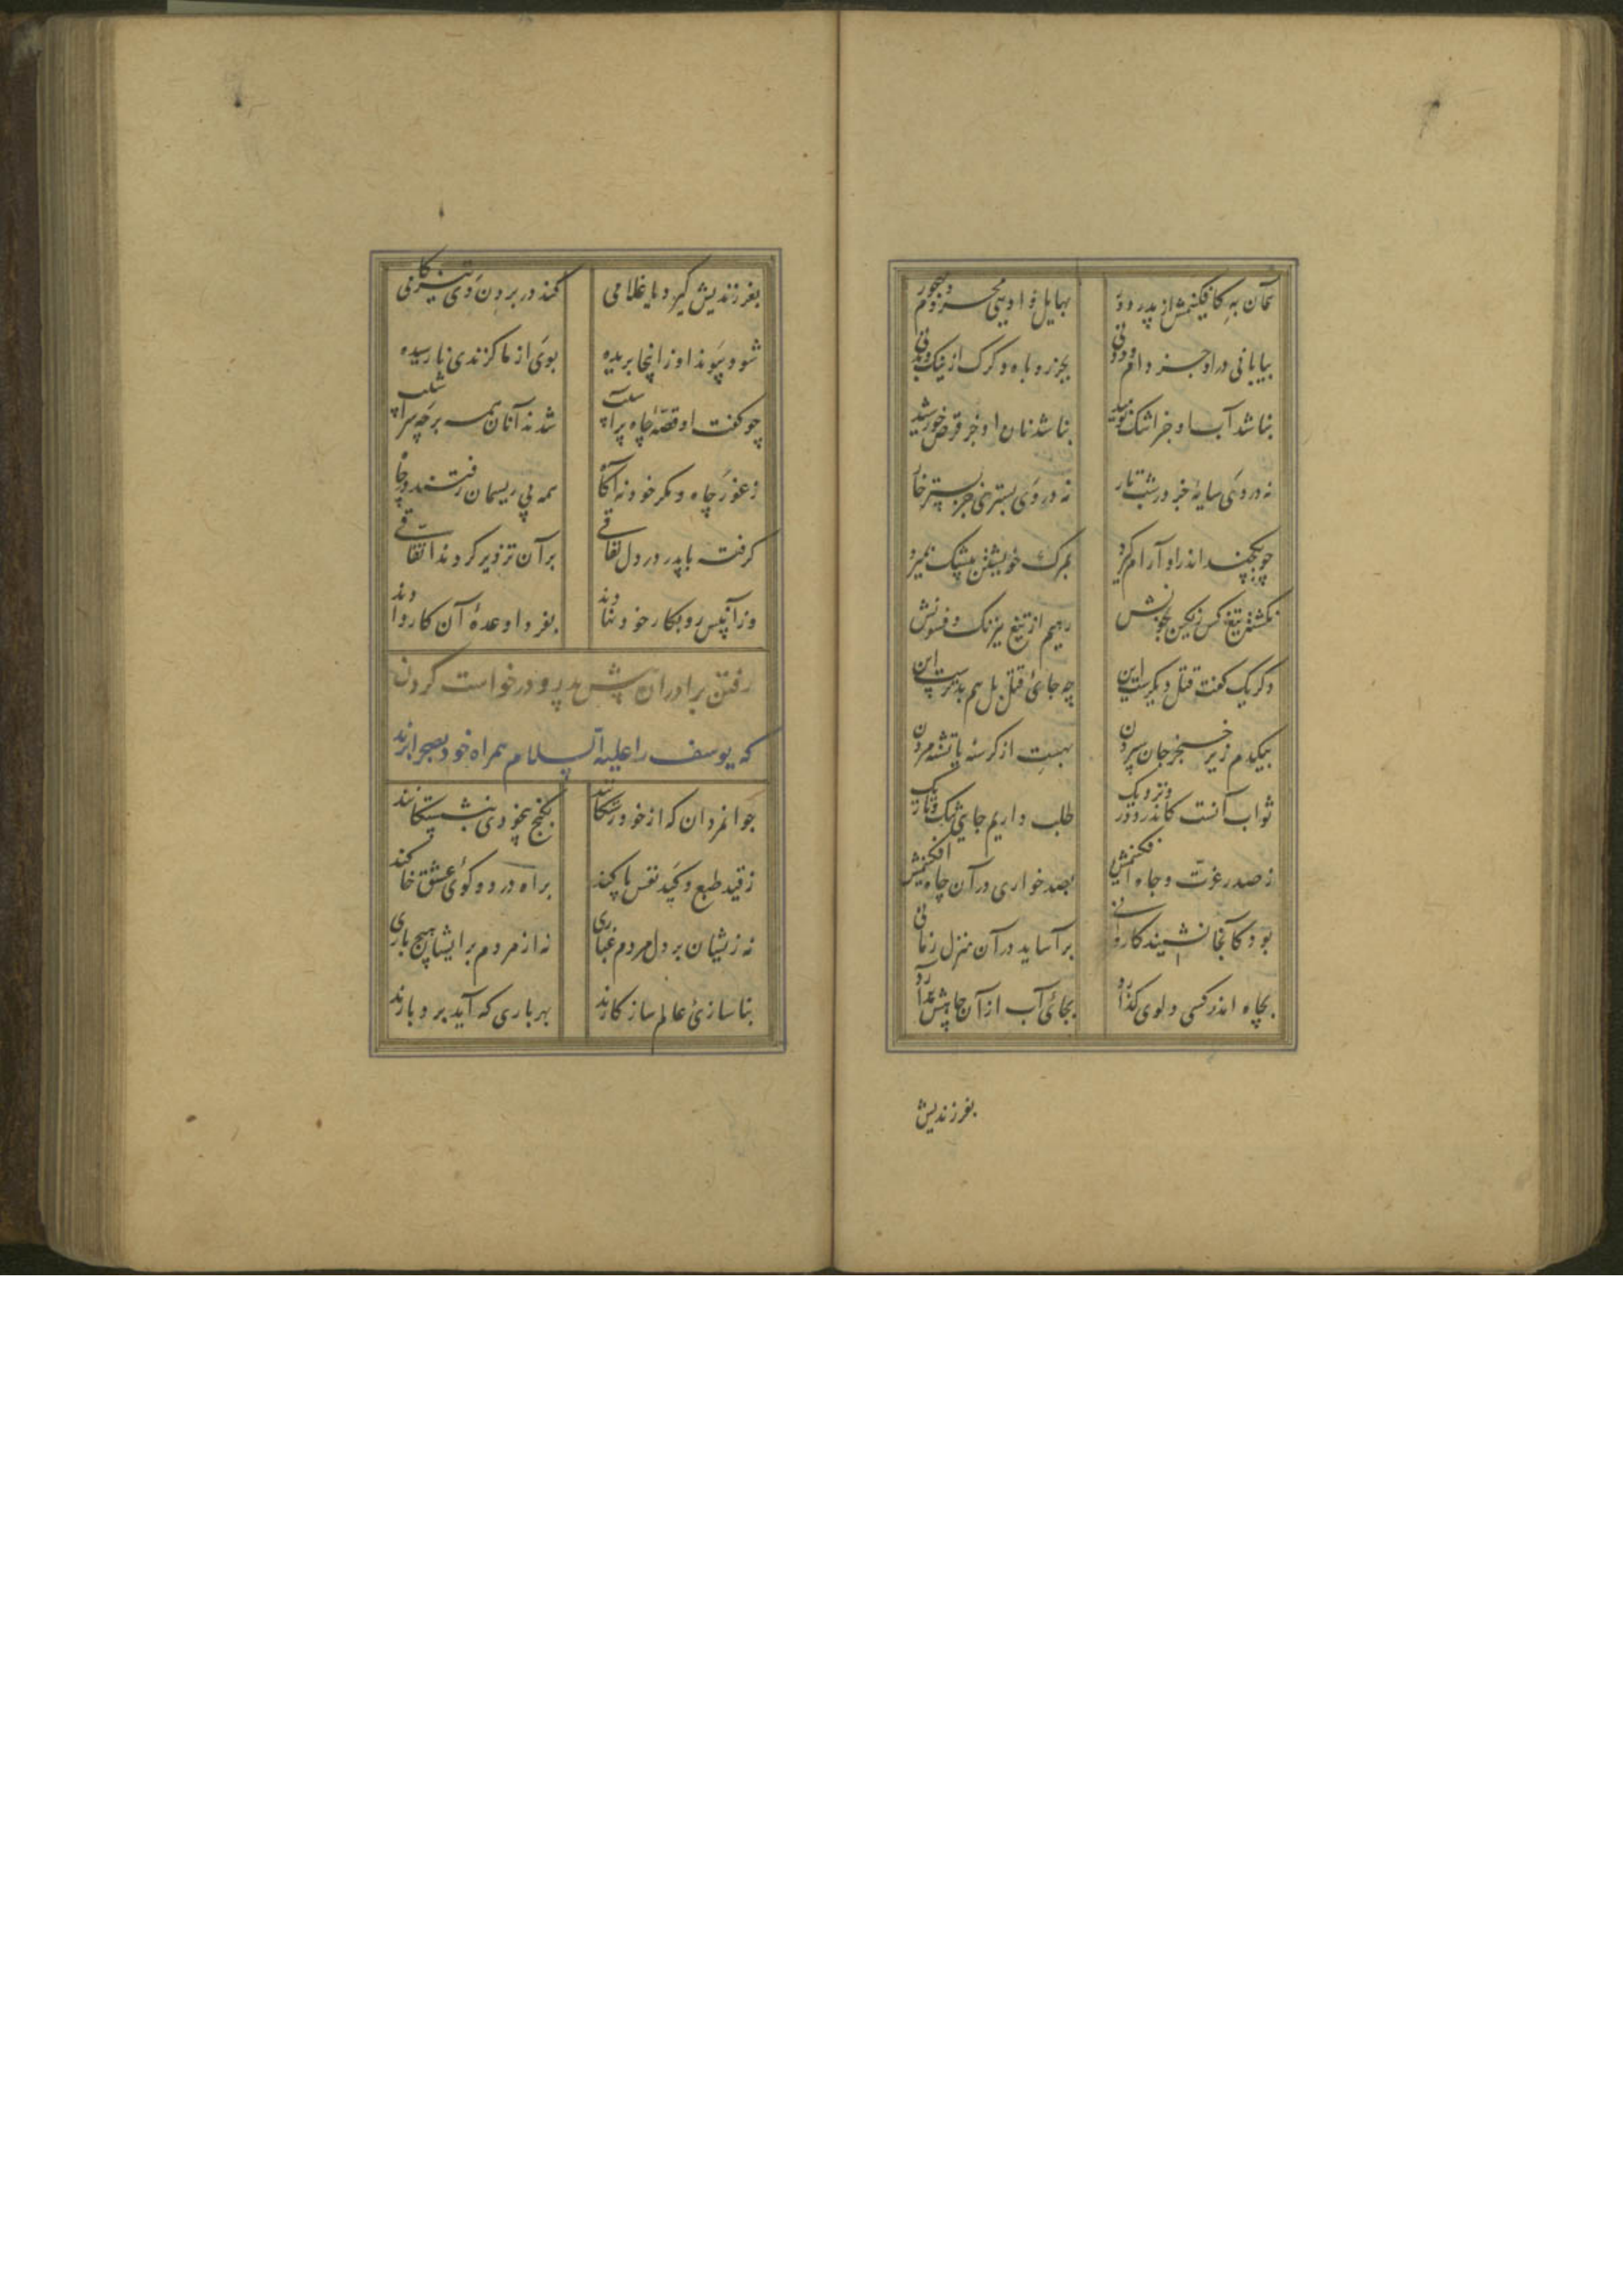 همان به کافکنیمش از پدر دور بهایل وادیی محروم و مهجور
بیابانی دراو جز دام و دد نی بجز روباه و کرک از نیک و بد نی
نباشد آب او جز اشک نومید نباشد نان او جز قرص خورشید
نه در وی سایهٔ جز در شب تار نه در وی بستری جز بستر خار
چو یکچند اندراو آرام کیرد بمرک خویشتن بیشک بمیرد
نکشته تیغ کس رنکین بخونش رهیم از تیغ نیرنک و فسونش
دکر یک کفت قتل دیکرست این چه جای قتل بل هم بدترست این
بیکدم زیر خنجر جان سپردن بهست از کرسنه یا تشنه مردن
ثواب آنست کاندر دور و نزدیک طلب داریم جای تنک و تاریک
ز صدر عزت و جاه افکنیمش بصد خواری در آن چاه افکنیمش
بود کانجا نشیند کاروانی بر آساید در آن منزل زمانی
بچاه اندر کسی دلوی کذارد بجای آب از آن چاهش برآرد
بفرزندیش
بفرزندیش کیرد یا غلامی کند در بردن وی تیزکامی
شود پیوند او زانجا بریده بوی از ما کزندی نارسیده
چو کفت او قصّهٔ چاه پر آسیب شدند آنان همه بر چه سراشیب
ز غور چاه مکر خود نه آکاه همه بی ریسمان رفتند در چاه
کرفت با پدر در دل نفاقی بر آن تزویر کردند اتّفاقی
وزآنپس رو بکار خود نهادند بفردا وعدهٔ آن کار دادند
رفتن برادران پیش پدر و درخواست کردن
که یوسف را علیه السلام همراه خود بصحرا برند
جوانمردان که از خود رستکانند بکنج بیخودی بنشستکانند
ز قید طبع و کید نفس پاکند براه درد و کوی عشق خاکند
نه زیشان بر دل مردم غباری نه از مردم بر ایشان هیچ باری
بناسازیٔ عالم سازکارند بهر باری که آید بردبارند